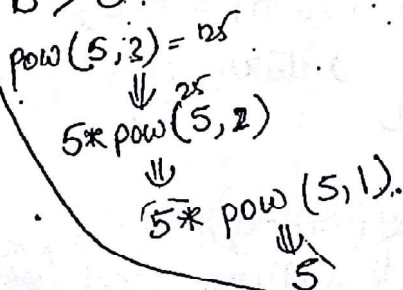 pow(5,3) = 125
25
5* pow(5,2)
5* pow (5,1).
5